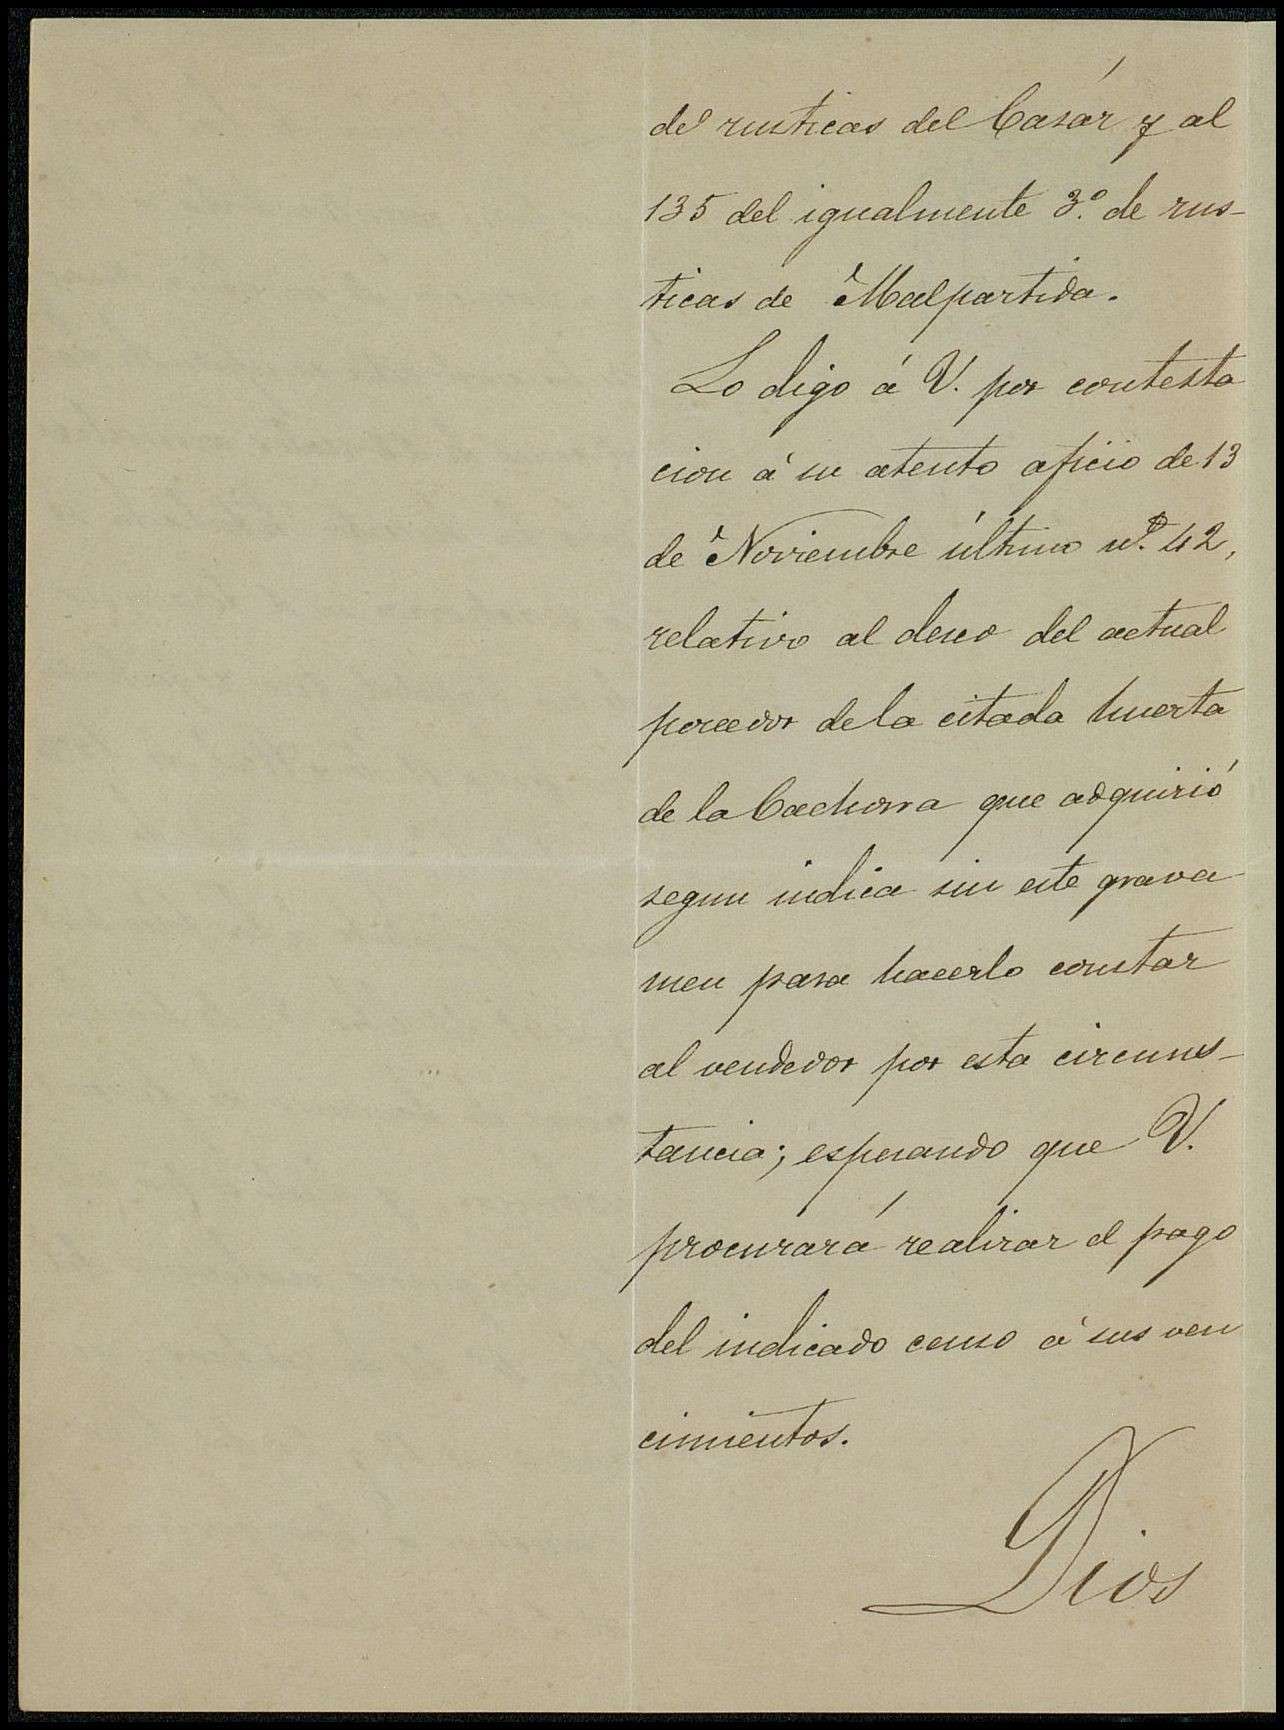 de rusticas del Casár y al
135 del igualmente 3.º de rus-
ticas de Malpartida.
Lo digo á V. por contesta
cion á su atento oficio de 13
de Noviembre último nº. 42,
relativo al deseo del actual
poseedor de la citada huerta
de la Cachorra que adquirió
segun indica sin este grava
men para hacerlo constar
al vendedor por esta circuns-
tancia; esperando que V.
procurará realizar el pago
del indicado censo á sus ven
cimientos.
Dios